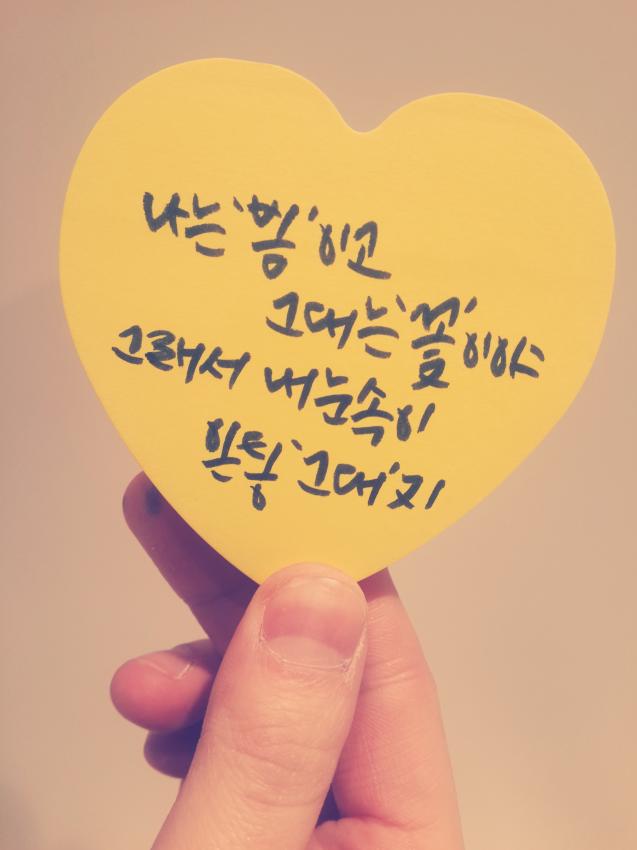 나는 '봄'이고
그대는 '꽃'이야
그래서 내 눈 속이
온통 '그대'지